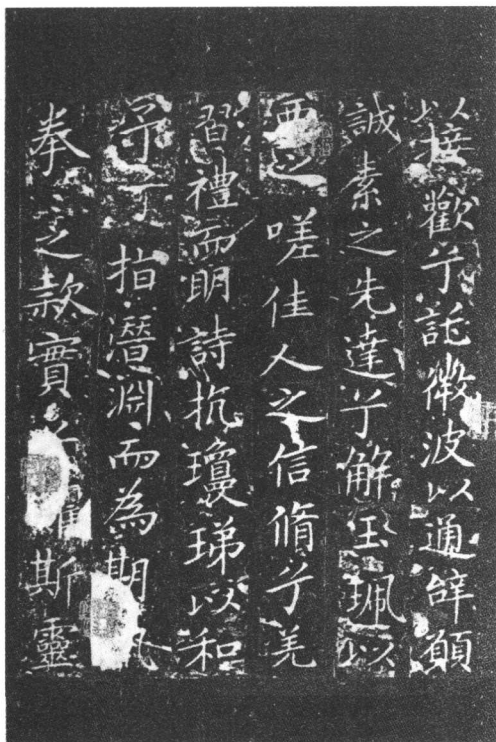 以接歡兮託微波以通辝願
誠素之先達兮解玉珮以
要之嗟佳人之信脩兮羌
習禮而眀詩抗瓊珶以和
予兮指潛淵而為期執
拳〻之款實兮斯靈